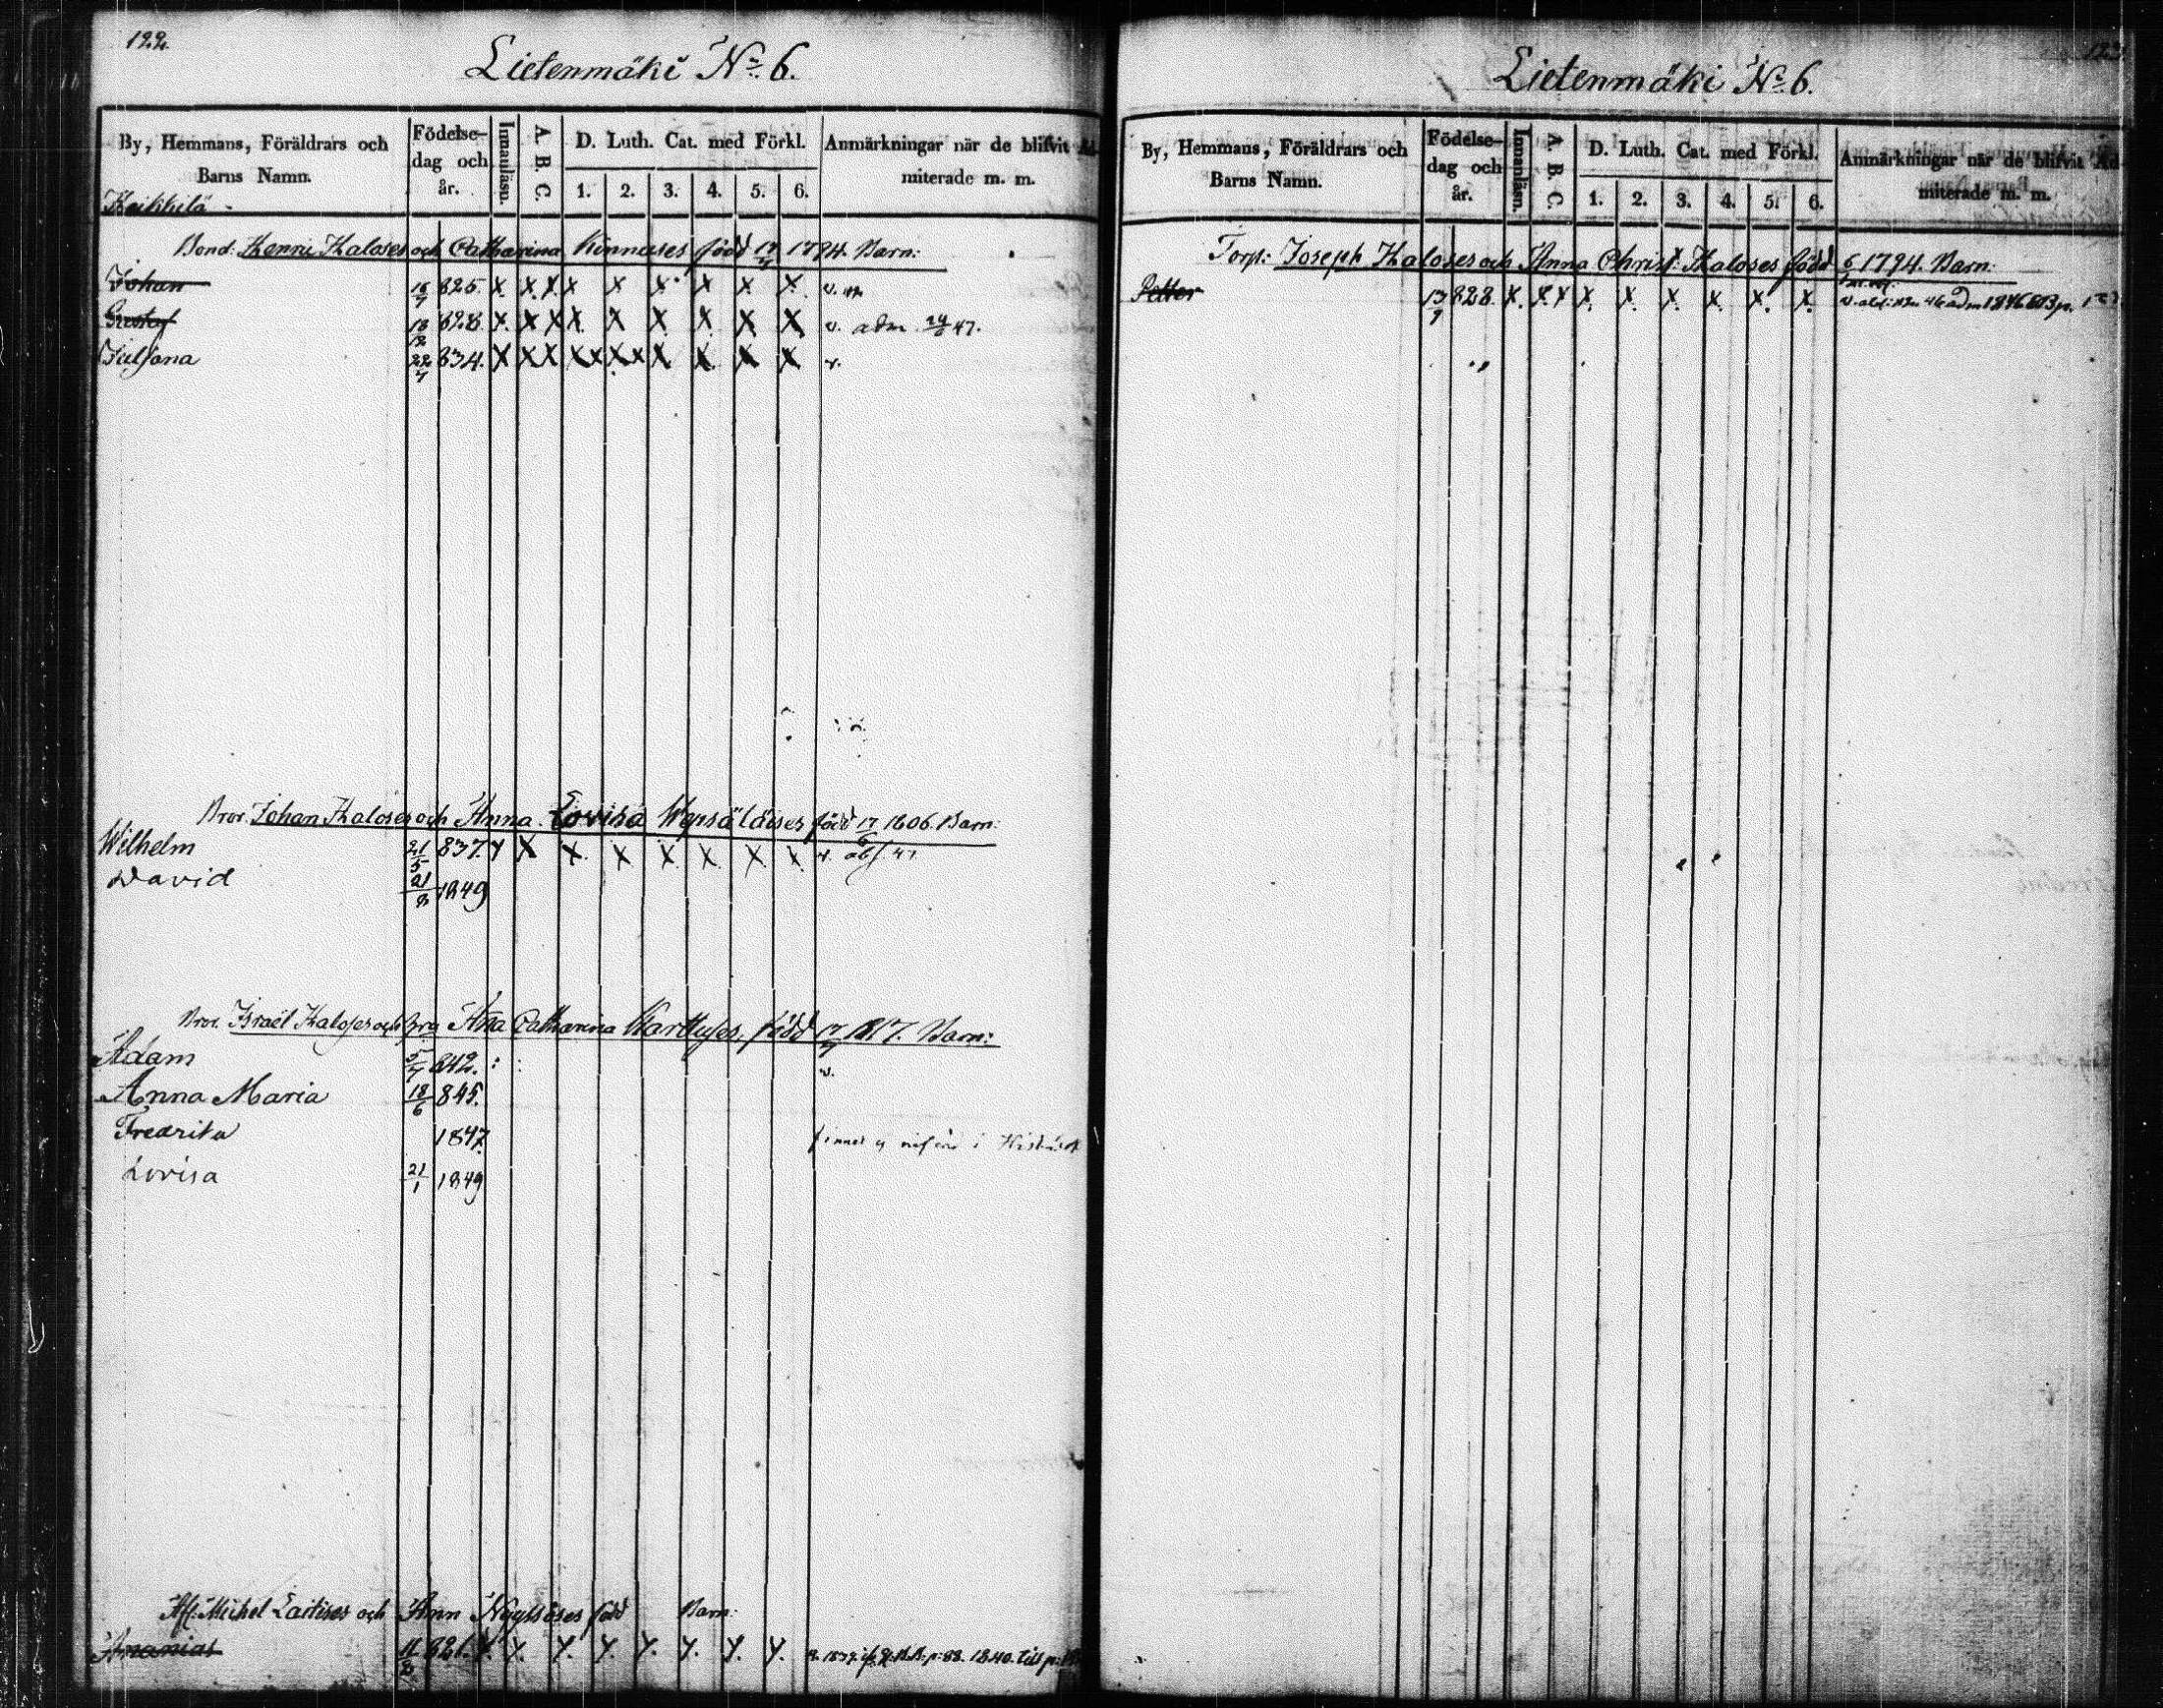 122.
Lietenmäki No 6.
By, Hemmans, Föräldrars och
Barns Namn.
Födelse-
dag och
år.
Innanläsn.
A. B. C.
D. Luth. Cat. med Förkl.
1. 2. 3. 4. 5. 6.
Anmärkningar när de blifvit Ad-
miterade m. m.
Heikkilä
Bond: Henric Haloses och Catharina Kinnuses född 17 1794. Barn:
Johan 18/7 825. X. X. X. X X X. X X X. v.
Gustaf 18/12 828 X. X X X. X X X X X v. adm. 24/6 47.
Juljana 22/7 834. X X X X X X X X X. X X v.
Bror. Johan Haloses och Anna Lovisa Wepsäläises född 17/6 1806. Barn:
Wilhelm 21/5 837. Y X X. X X. X. X. X. v. abs. 47
David 21/8 1849
Bror. Israël Haloses och Anna Catharina Karttuses, född 17 1817. Barn:
Adam 5/7 842. v.
Anna Maria 18/6 845.
Fredrika 1847.
finnes
Lovisa 21/1 1849
Michel Laitises och Ann Nyyssöses född Barn:
Ananias 11 821. Y. Y. Y. Y. Y. Y. Y. Y. p. 88. 1840. till p.
Lietenmäki No 6.
By, Hemmans, Föräldrars och
Barns Namn.
Födelse-
dag och
år.
Innanläsn.
A. B. C.
D. Luth. Cat. med Förkl.
1. 2. 3. 4. 5. 6.
Anmärkningar när de blifvit Ad-
miterade m. m.
Torp: Joseph Haloses och Anna Christ: Haloses född 6 1794. Barn:
Petter 13/9 828. X. X. X X. X. X. X. X. X. adm 1846